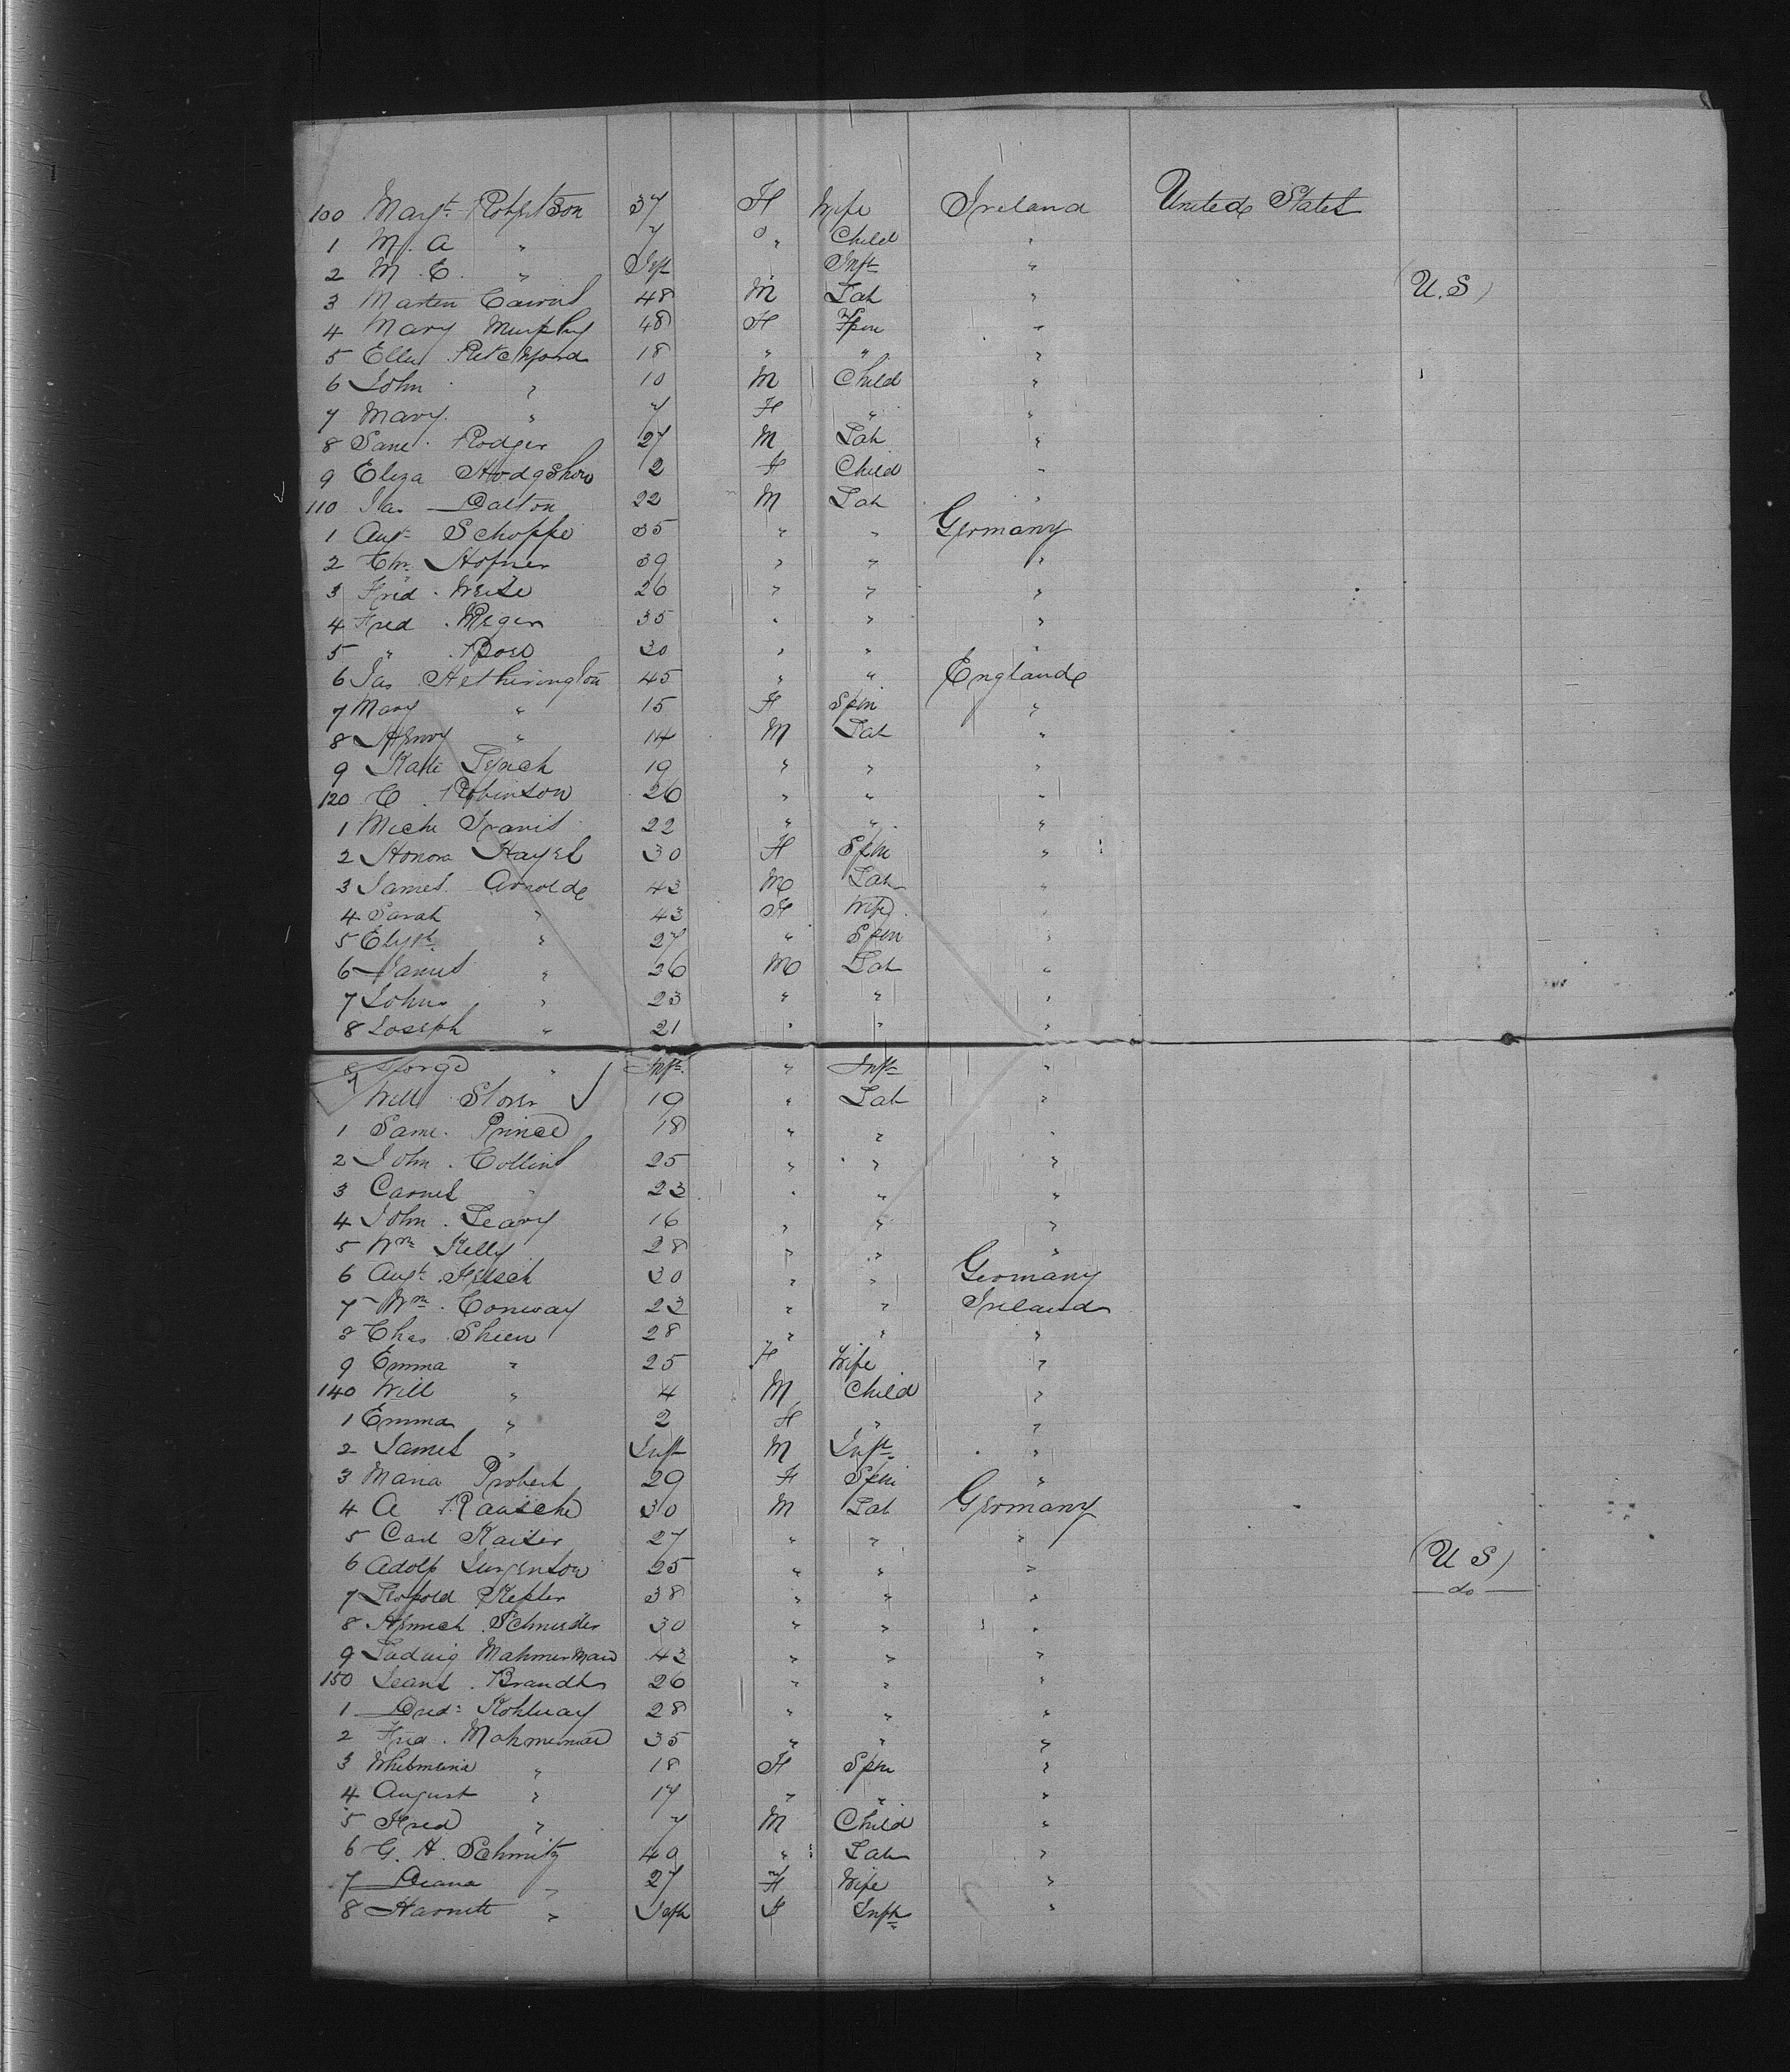 100 Margt. Robertson 37 F Wife Ireland United States
1 M. A " 7 " Child "
2 M. E. " Inft " Inft "
3 Marten Cairns 48 M Lab " (U.S)
4 Mary Murphy 48 F Spin "
5 Ellen 18 " " "
6 John " 10 M Child "
7 Mary " 7 F " "
8 Saml. Rodger 27 M Lab "
9 Eliza Hodgshon 2 F Child "
110 Jas Dalton 22 M Lab "
1 Augt. Schoppe 35 " " Germany
2 Chr. Hofner 39 " " "
3 Fred. Weise 26 " " "
4 Fred. 35 " " "
5 " 30 " " "
6 Jas Hetherington 45 " " England
7 Mary " 15 F Spin "
8 Henry " 14 M Lab "
9 Kate Lynch 19 " " "
120 C. Robinson 26 " " "
1 Miche Travis 22 " " "
2 Honora Hayes 30 F Spin "
3 James Arnold 43 M Lab "
4 Sarah " 43 F Wife "
5 Elizth. " 27 " Spin "
6 James " 26 M Lab "
7 John " 23 " " "
8 Joseph " 21 " " "
9 George " Inft. " Inft "
Will 19 " Lab "
1 Saml. Prince 18 " " "
2 John. Collins 25 " " "
3 " 23 " " "
4 John. Leary 16 " " "
5 Wm Kelly 28 " " "
6 Augt. 30 " " Germany
7 Wm. Conway 23 " " Ireland
8 Chas Sheen 28 " " "
9 Emma " 25 F Wife "
140 Will " 4 M Child "
1 Emma " 2 F " "
2 James " Inft M Inft. "
3 Maria Probert 29 F Spin "
4 A Rausche 30 M Lab Germany
5 Carl Kaiser 27 " " "
6 Adolf Jurgenson 25 " " " (U S)
7 Leopold Kepler 38 " " " do
8 Heinrich Schneider 30 " " "
9 Ludwig 43 " " "
150 Brandt 26 " " "
1 28 " " "
2 Fred. 35 " " "
3 " 18 F Spin "
4 August " 17 " " "
5 Fred " 7 M Child "
6 G. H. Schmitz 49 " Lab "
7 Diana " 27 F Wife "
8 " Inft F Inft "